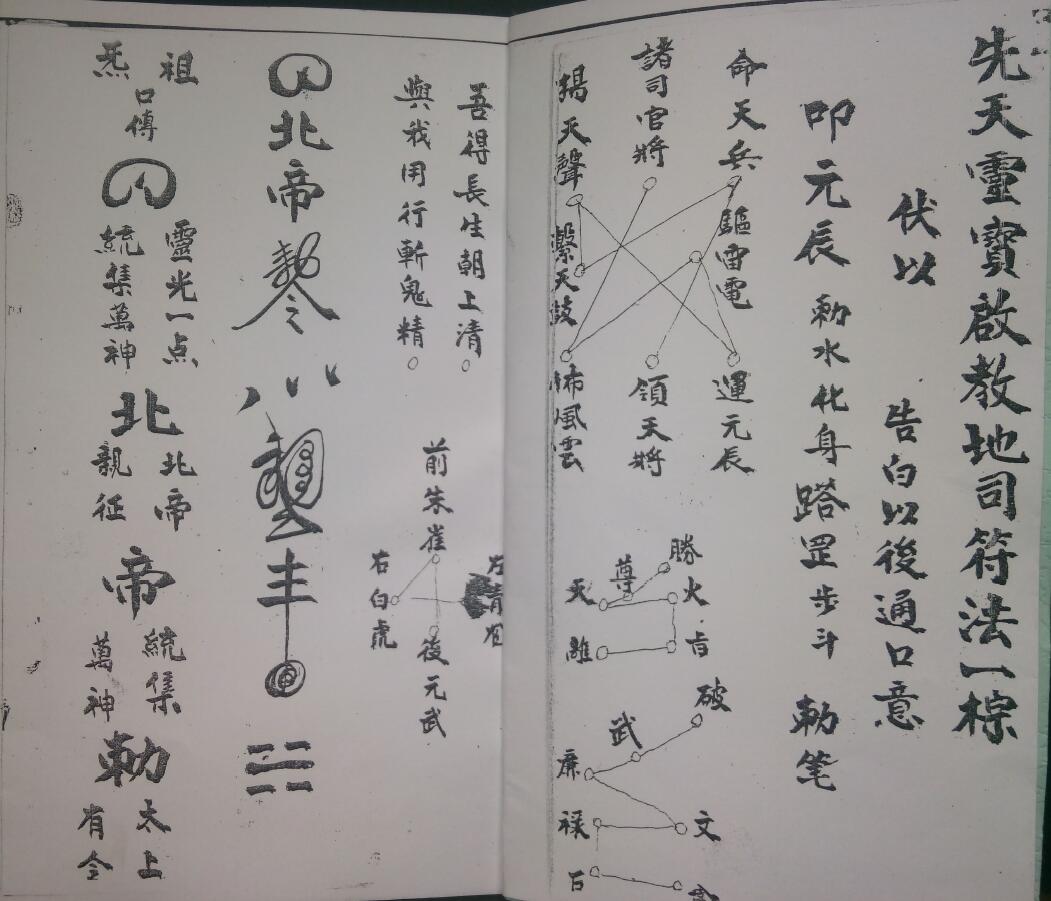 先天靈寶啟教地司符法一棕
伏以 告白以後通口意
叩元辰 勑水化身踏罡步斗 勑笔
命天兵
驅雷電
運元辰
諸司官將
領天將
揚天聲
擊天鼓
佈風雲
勝
尊
天
火
離
破
武
廉
文
祿
吾得長生朝上清
與我用行斬鬼精
前朱雀
右白虎
後元武
北帝
祖炁
口傳
靈光一点
統集萬神
北
北帝
親征
帝
統集
萬神
勑
太上
有令